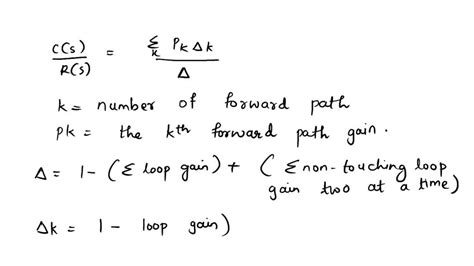 C(s)/R(s) = Σk Pk Δk / Δ
k = number of forward path
Pk = the kth forward path gain.
Δ = 1 - (Σ loop gain) + (Σ non-touching loop
gain two at a time)
Δk = 1 - loop gain)